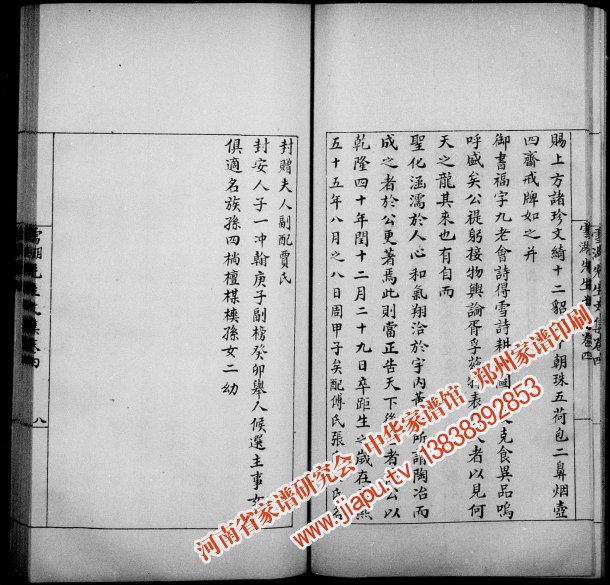 賜上方諸珍文綺十二貂 朝珠五荷包二鼻烟壺
四齋戒牌如之并
御書福字九老會詩得雪詩耕 圖 克食異品嗚
呼盛矣公禔躬接物輿論胥孚 表 者以見何
天之龍其來也有自而
聖化涵濡於人心和氣翔洽於宇内 所謂陶冶而
成之者於公更著焉此則當正告天下後 者 公以
乾隆四十年閏十二月二十九日卒距生之歲在 熙
五十五年八月之八日周甲子矣配傅氏張 氏
封贈夫人副配賈氏
封安人子一冲翰庚子副榜癸卯舉人候選主事女
俱適名族孫四檔檀楳樉孫女二幼
八
河南省家谱研究会 中华家谱馆 郑州家谱印刷
www.jiapu.tv 13838392853